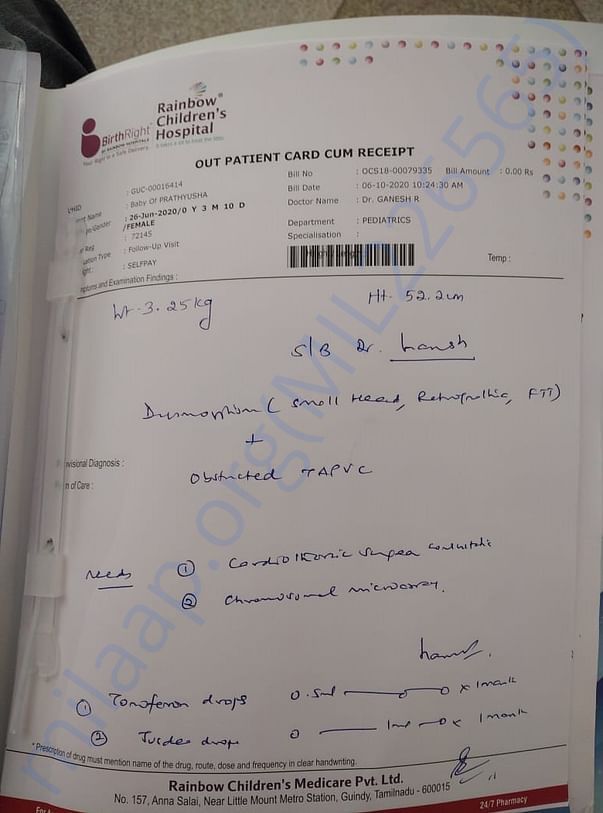 BirthRight
BY RAINBOW HOSPITALS
Your Right to a Safe Delivery
Rainbow®
Children's
Hospital
It takes a lot to treat the little.
OUT PATIENT CARD CUM RECEIPT
UHID : GUC-00016414
Name : Baby Of PRATHYUSHA
/Gender : 26-Jun-2020/0 Y 3 M 10 D
/FEMALE
Reg : 72145
Type : Follow-Up Visit
: SELFPAY
Bill No : OCS18-00079335 Bill Amount : 0.00 Rs
Bill Date : 06-10-2020 10:24:30 AM
Doctor Name : Dr. GANESH R
Department : PEDIATRICS
Specialisation :
Temp :
ptoms and Examination Findings :
Wt - 3.25kg
Ht - 52.2cm
S/B Dr.
Dysmorphism ( Small Head, Retrognathia, FTT)
+
visional Diagnosis :
n of Care :
Obstructed TAPVC
Needs
① Cardiothoracic Surgeon Consultation
② Chromosomal microarray.
① Tonoferon drops 0.5ml — 0 — 0 x 1 month
② drops 0 — 1ml — 0 x 1 month
* Prescription of drug must mention name of the drug, route, dose and frequency in clear handwriting.
Rainbow Children's Medicare Pvt. Ltd.
No. 157, Anna Salai, Near Little Mount Metro Station, Guindy, Tamilnadu - 600015
24/7 Pharmacy
milaap.org(MIL226565)